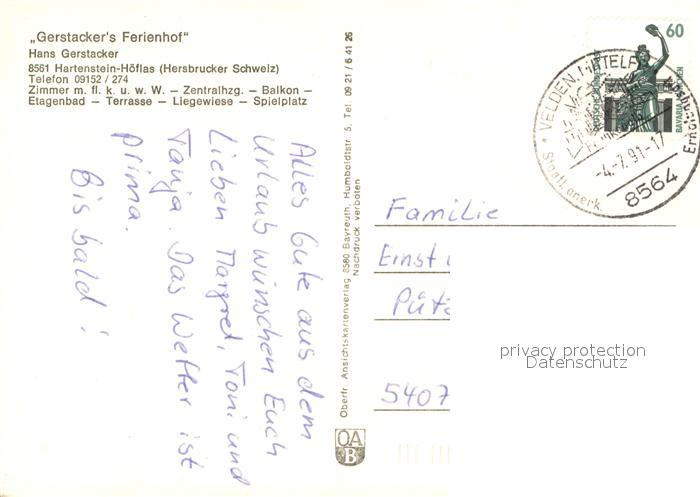 „Gerstacker's Ferienhof"
Hans Gerstacker
8561 Hartenstein-Höflas (Hersbrucker Schweiz)
Telefon 09152 / 274
Zimmer m. fl. k. u. w. W. — Zentralhzg. — Balkon —
Etagenbad — Terrasse — Liegewiese — Spielplatz
Alles Gute aus dem
Urlaub wünschen Euch
Lieben Margret, Toni und
Tanja. Das Wetter ist
prima.
Bis bald!
Oberfr. Ansichtskartenverlag 8580 Bayreuth, Humboldtstr. 5, Tel. 09 21 / 6 41 26
Nachdruck verboten
OA
B
60
DEUTSCHE BUNDESPOST
BAVARIA MÜNCHEN
* VELDEN, MITTELFR
-4.-7.91-17
8564
Staatl. anerk.
Erho
Familie
Einst
Pütz
5407
privacy protection
Datenschutz